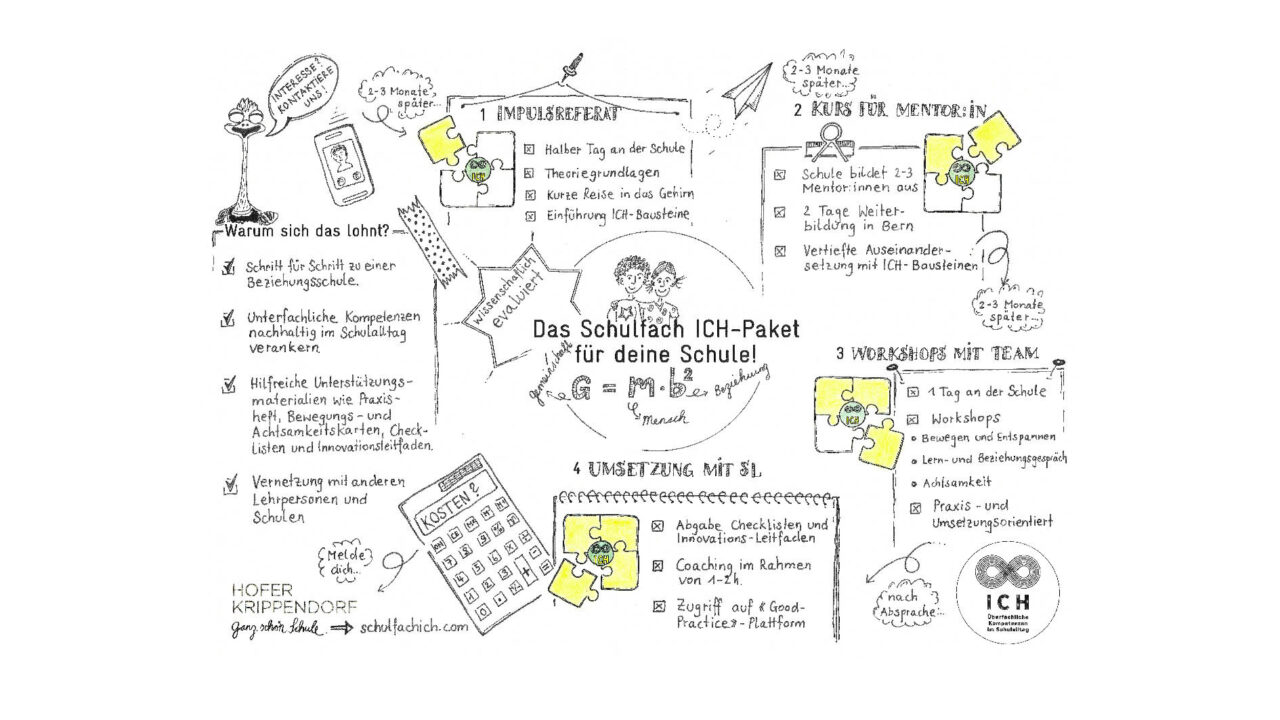 INTERESSE?
KONTAKTIERE
UNS!
2-3 Monate
später...
1 IMPULSREFERAT
Halber Tag an der Schule
Theoriegrundlagen
Kurze Reise in das Gehirn
Einführung ICH-Bausteine
2-3 Monate
später...
2 KURS FÜR MENTOR:IN
Schule bildet 2-3
Mentor:innen aus
2 Tage Weiter-
bildung in Bern
Vertiefte Auseinander-
setzung mit ICH-Bausteinen
2-3 Monate
später...
Warum sich das lohnt?
Schritt für Schritt zu einer
Beziehungsschule.
Unterfachliche Kompetenzen
nachhaltig im Schulalltag
verankern
Hilfreiche Unterstützungs-
materialien wie Praxis-
heft, Bewegungs- und
Achtsamkeitskarten, Check-
listen und Innovationsleitfaden.
Vernetzung mit anderen
Lehrpersonen und
Schulen
wissenschaftlich
evaluiert
Das Schulfach ICH-Paket
für deine Schule!
G = M·b²
Gemeinschaft
Mensch
Beziehung
3 WORKSHOPS MIT TEAM
1 Tag an der Schule
Workshops
Bewegen und Entspannen
Lern- und Beziehungsgespräch
Achtsamkeit
Praxis- und
Umsetzungsorientiert
nach
Absprache...
4 UMSETZUNG MIT SL
Abgabe Checklisten und
Innovations-Leitfaden
Coaching im Rahmen
von 1-2h.
Zugriff auf «Good-
Practice»-Plattform
KOSTEN?
Melde
dich...
HOFER
KRIPPENDORF
ganz schön Schule ⇒ schulfachich.com
ICH
Überfachliche
Kompetenzen
im Schulalltag